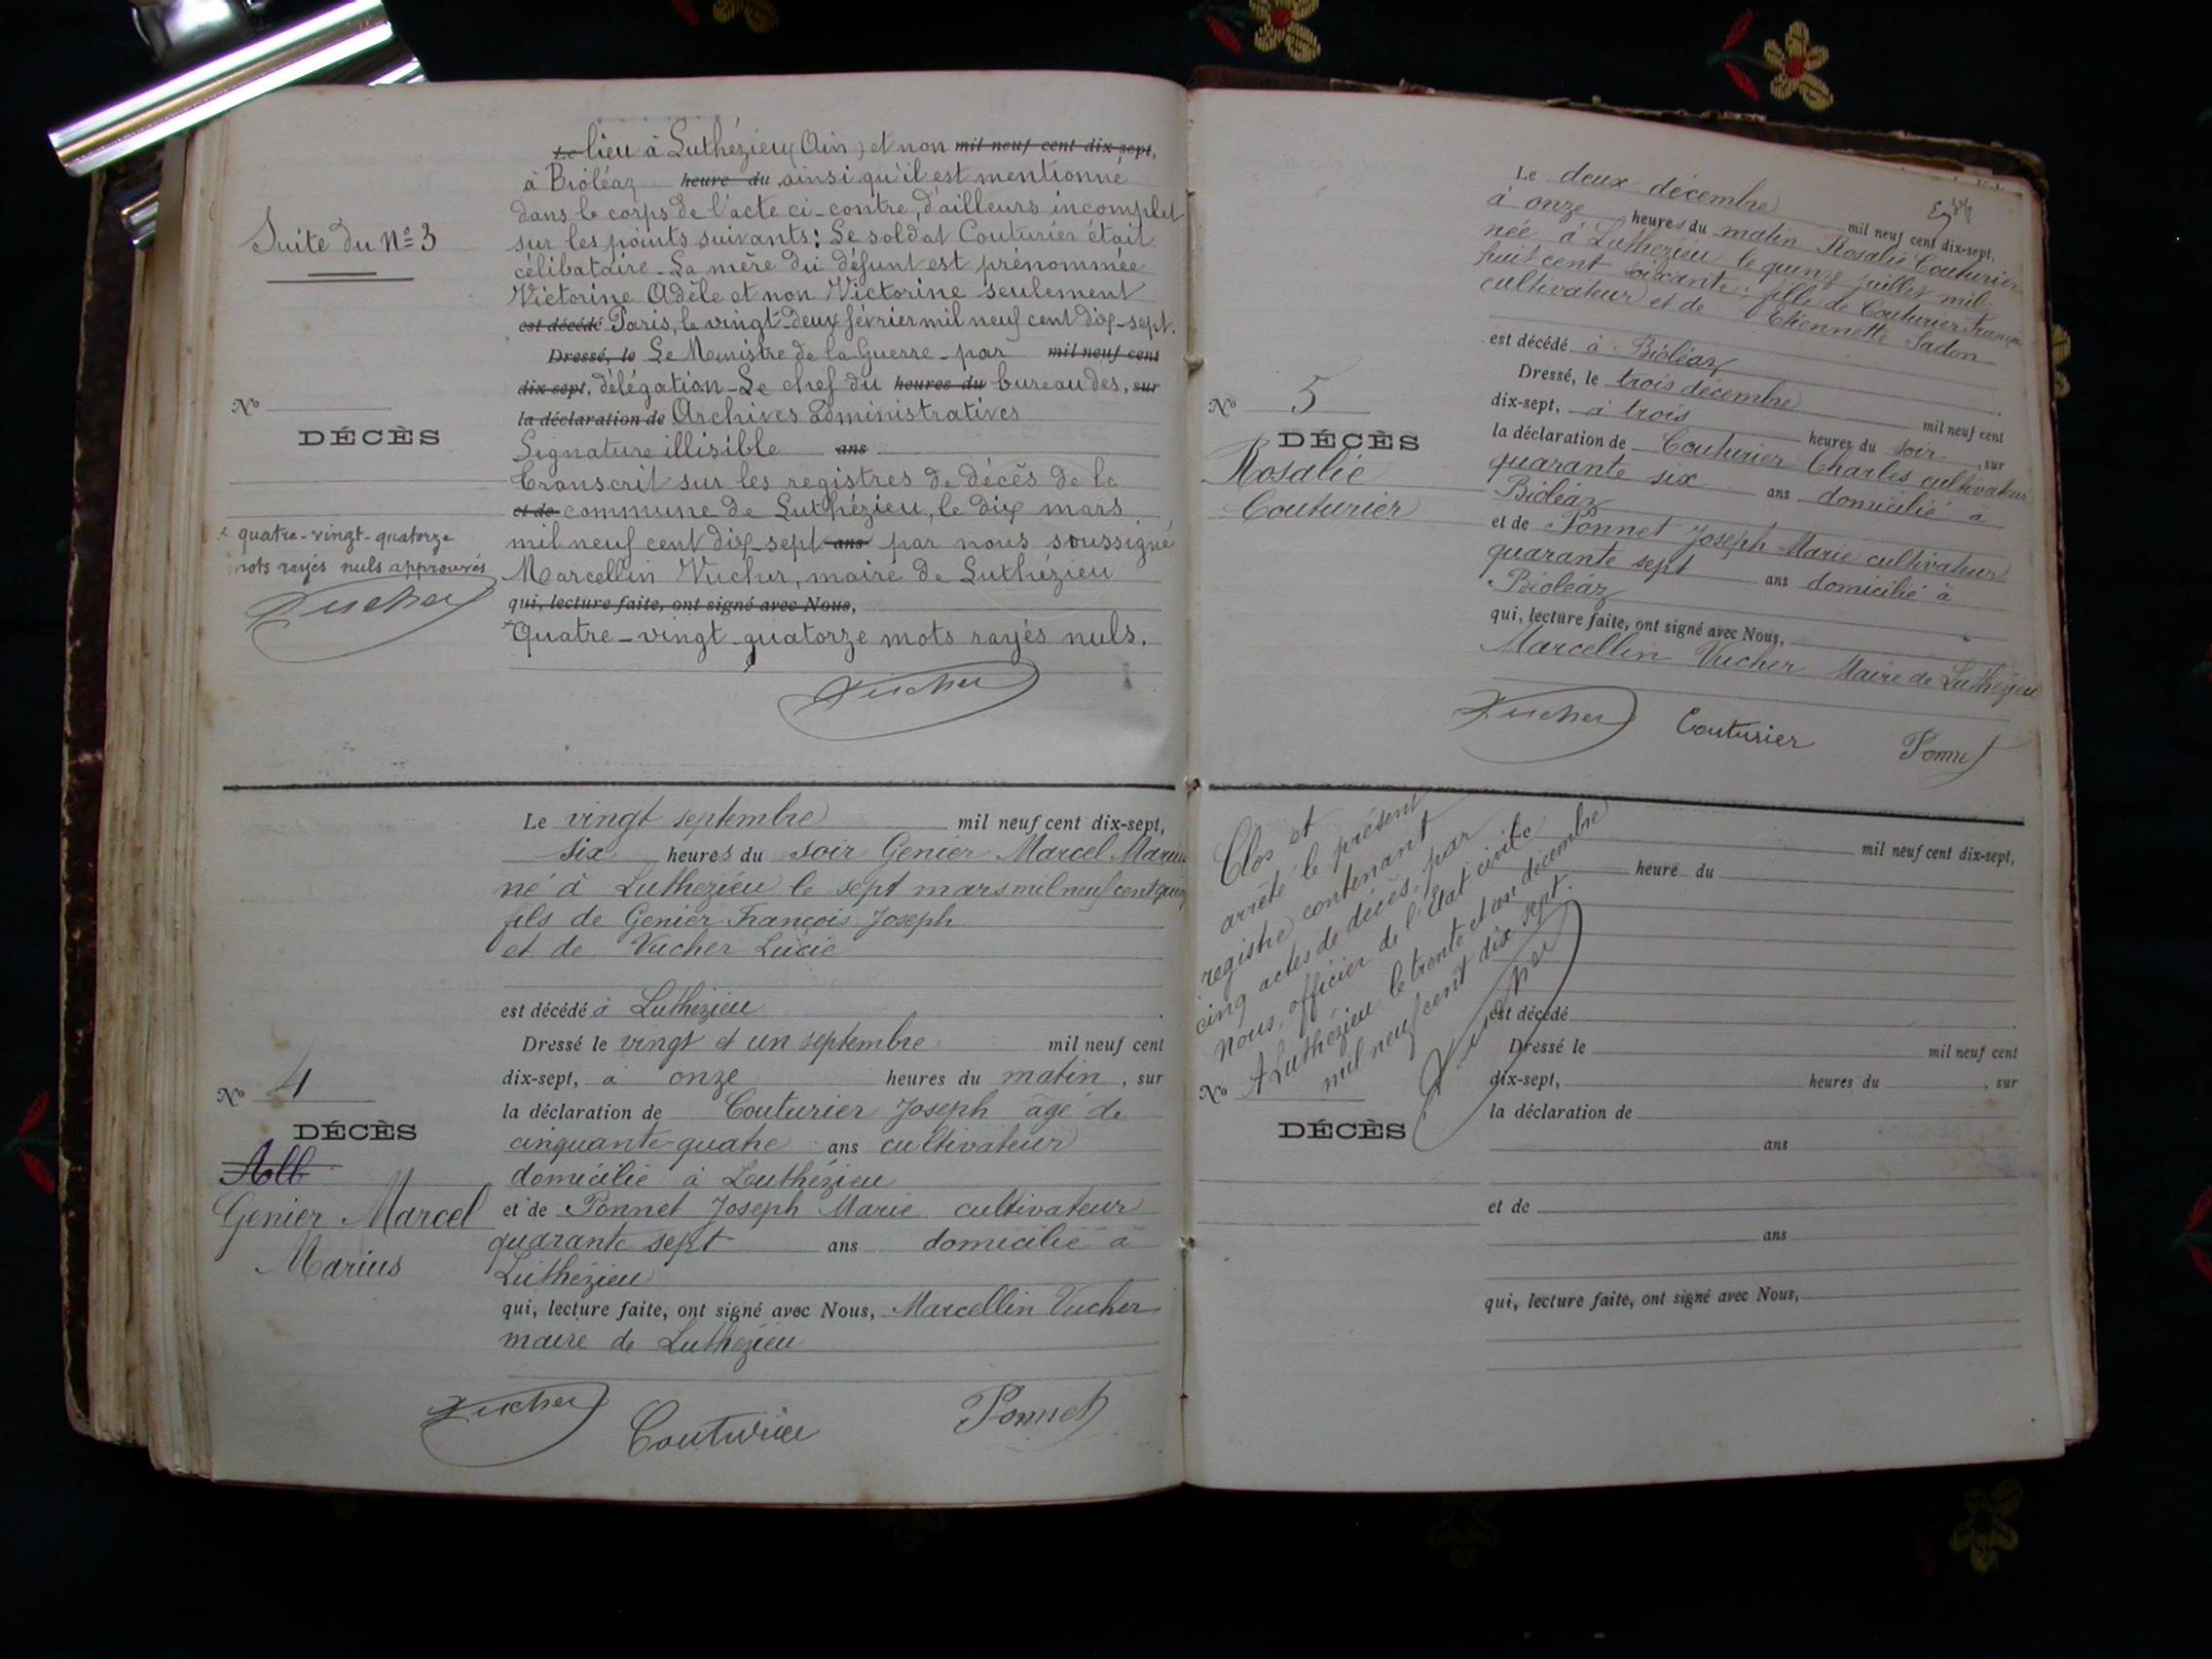 Suite du N° 3
Le lieu à Luthézieu (Ain) et non mil neuf cent dix-sept,
à Bioléaz heure du ainsi qu'il est mentionné
dans le corps de l'acte ci-contre, d'ailleurs incomplet
sur les points suivants : Le soldat Couturier était
célibataire - La mère du défunt est prénommée
Victorine Adèle et non Victorine seulement
est décédé Paris, le vingt-deux février mil neuf cent dix-sept.
Dressé, le Le Ministre de la Guerre - par mil neuf cent
dix-sept, délégation - Le chef du heures du bureau des, sur
la déclaration de Archives administratives
Signature illisible ans
Transcrit sur les registres de décès de la
et de commune de Luthézieu, le dix mars
mil neuf cent dix-sept ans par nous soussigné
Marcellin Vucher, maire de Luthézieu
qui, lecture faite, ont signé avec Nous,
Quatre-vingt quatorze mots rayés nuls.
Vucher
N°
DÉCÈS
quatre-vingt-quatorze
mots rayés nuls approuvés
Vucher
Le vingt septembre mil neuf cent dix-sept,
six heures du soir Genier Marcel Marius
né à Luthezieu le sept mars mil neuf cent
fils de Genier François Joseph
et de Vucher Lucie
est décédé à Luthezieu
Dressé le vingt et un septembre mil neuf cent
dix-sept, à onze heures du matin, sur
la déclaration de Couturier Joseph agé de
cinquante-quatre ans cultivateur
domicilié à Luthézieu
et de Ponnet Joseph Marie cultivateur
quarante sept ans domicilié à
Luthézieu
qui, lecture faite, ont signé avec Nous, Marcellin Vucher
maire de Luthézieu
Vucher Couturier Ponnet
N° 4
DÉCÈS
Alb
Genier Marcel
Marius
Le deux décembre mil neuf cent dix-sept,
à onze heures du matin Rosalie Couturier
née à Luthezieu le quinze juillet mil
huit cent soixante ; fille de Couturier François
cultivateur et de Etiennette Sadon
est décédé à Bioléaz
Dressé, le trois décembre mil neuf cent
dix-sept, à trois heures du soir, sur
la déclaration de Couturier Charles cultivateur
quarante six ans domicilié à
Bioléaz
et de Ponnet Joseph Marie cultivateur
quarante sept ans domicilié à
Bioléaz
qui, lecture faite, ont signé avec Nous,
Marcellin Vucher Maire de Luthézieu
Vucher Couturier Ponnet
N° 5
DÉCÈS
Rosalie
Couturier
Clos et
arrêté le présent
registre contenant
cinq actes de décès, par
nous, officier de l'état civile
A Luthézieu le trente et un décembre
mil neuf cent dix sept.
Vucher
mil neuf cent dix-sept,
heure du
est décédé
Dressé le mil neuf cent
dix-sept, heures du , sur
la déclaration de
ans
et de
ans
qui, lecture faite, ont signé avec Nous,
N°
DÉCÈS